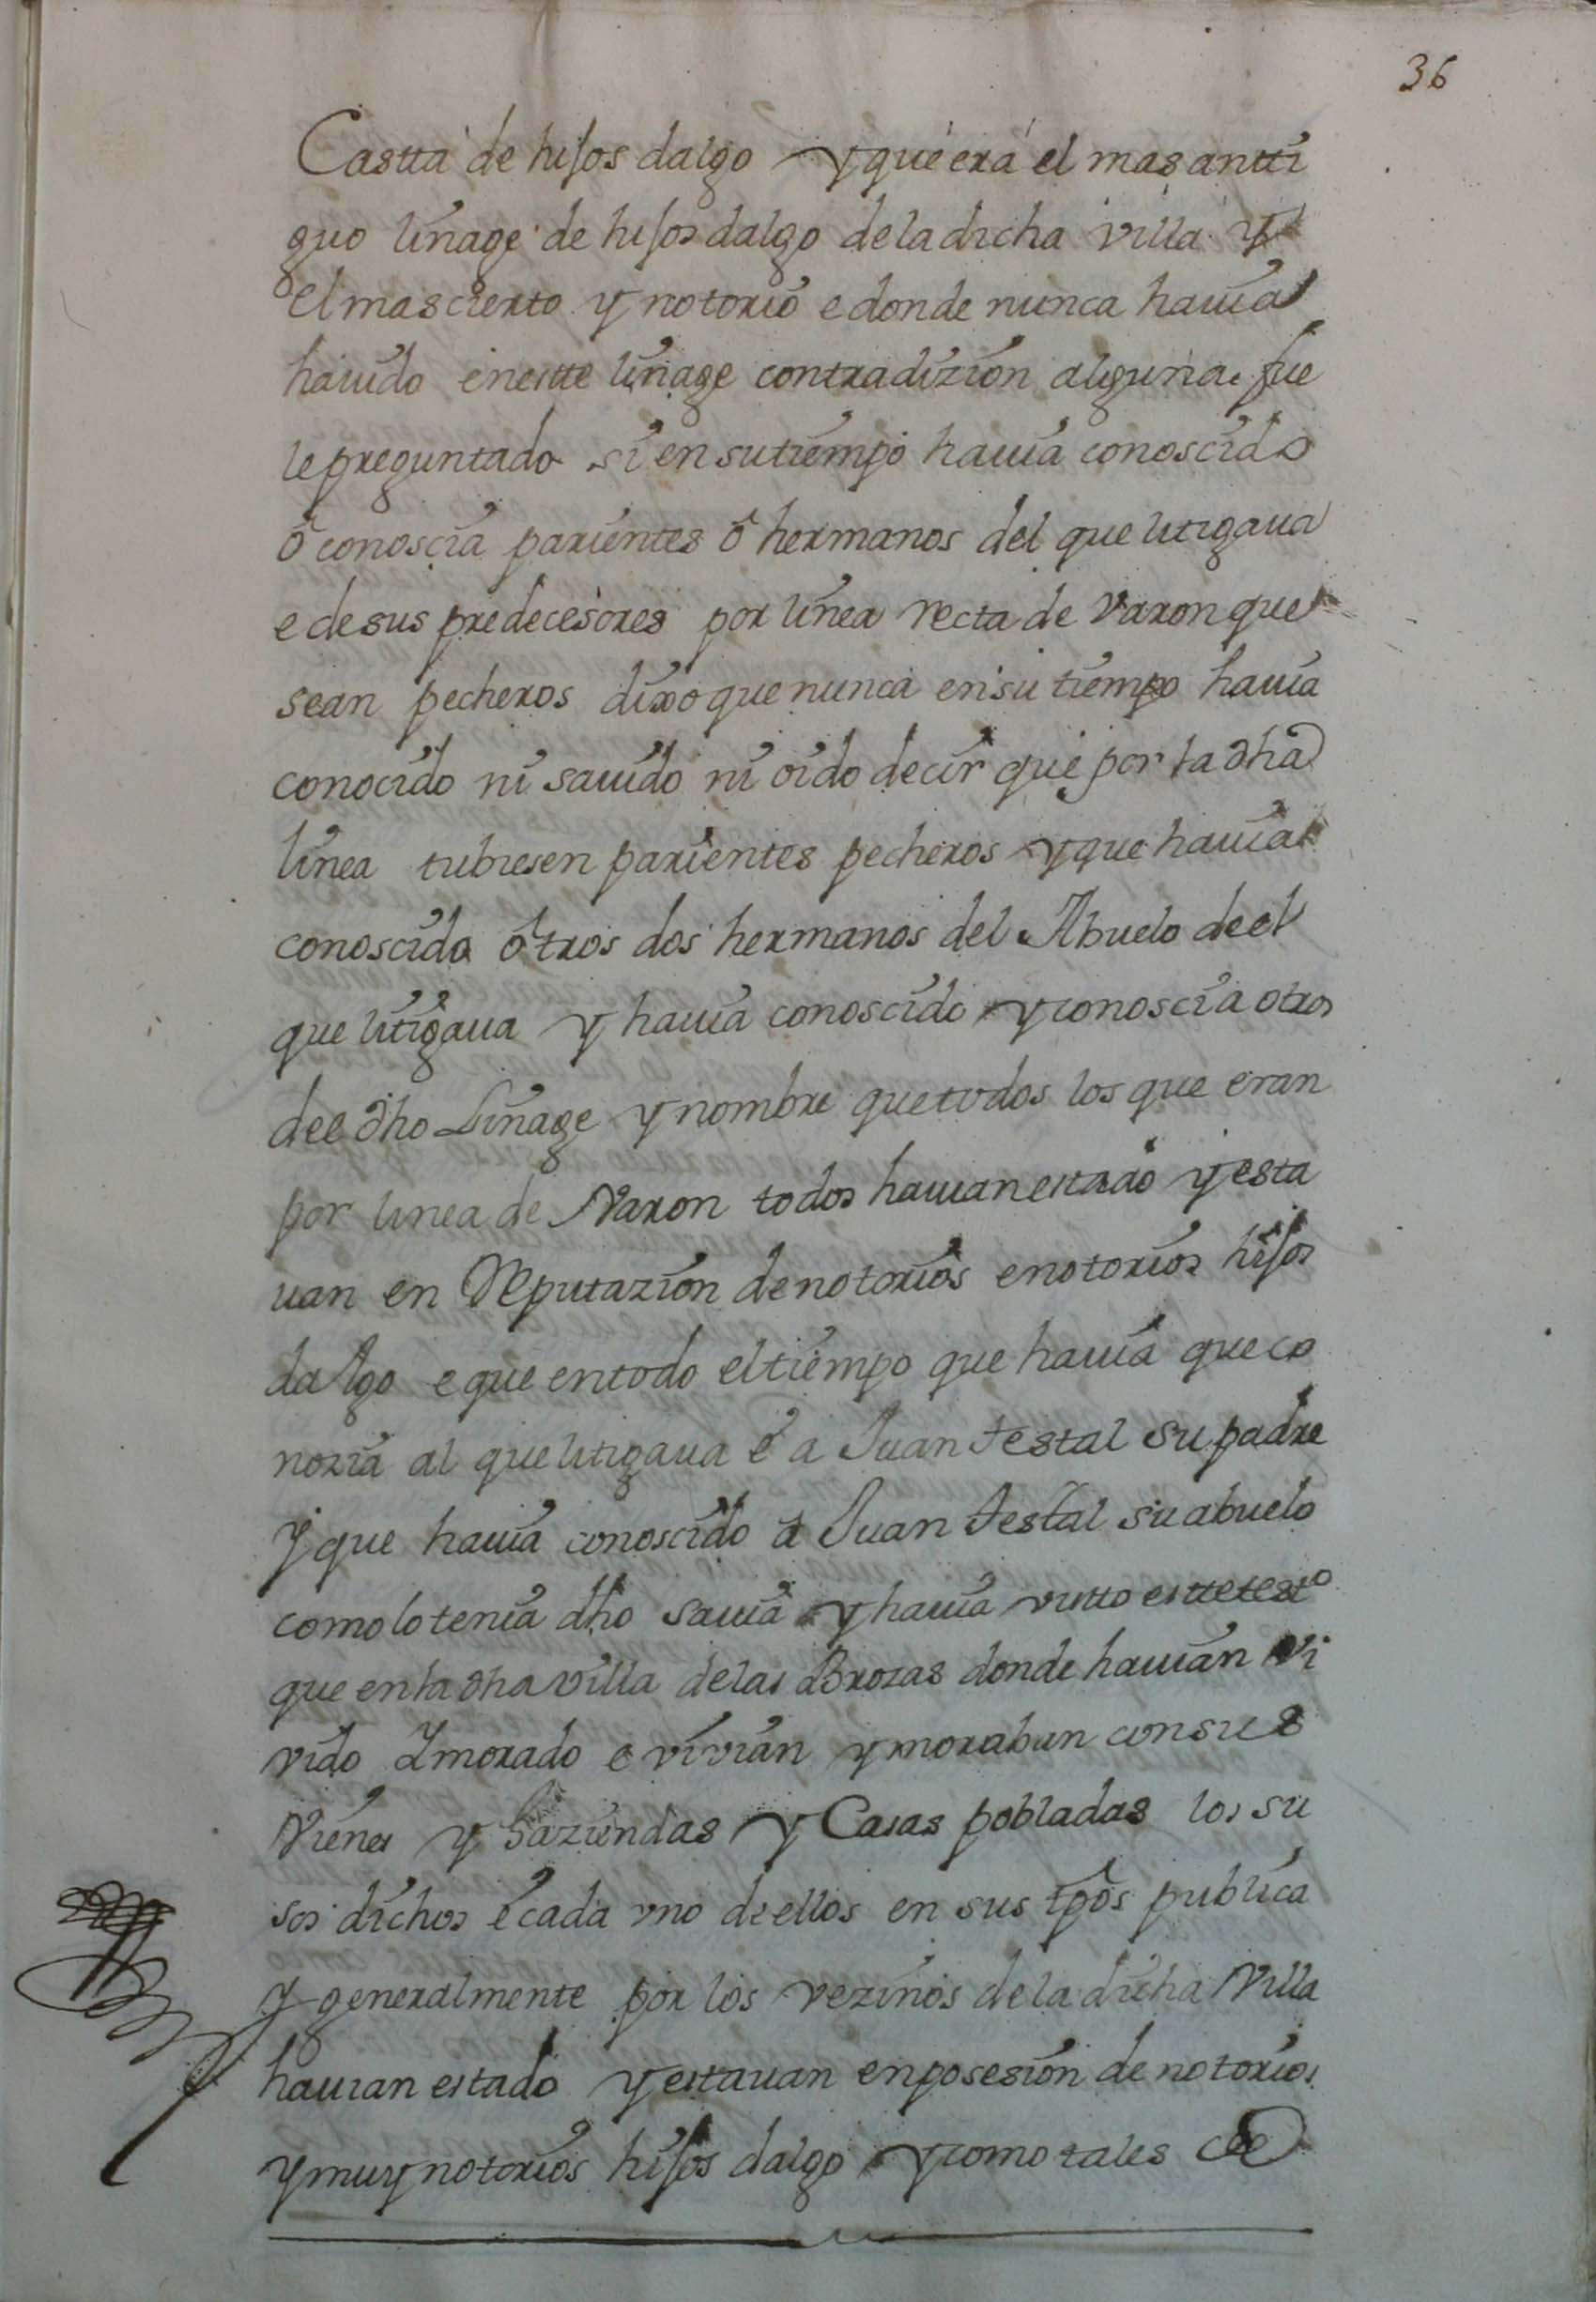 36
Castta de hijos dalgo y que era el mas antti
guo linage de hijos dalgo de la dicha villa y
el mas cierto y notorio e donde nunca hauia
hauido en estte linage contradizion alguna fue
le preguntado si en su tiempo hauia conoscido
ô conoscia parientes ô hermanos del que litigaua
e de sus predecesores por linea recta de varon que
sean pecheros dixo que nunca en su tiempo hauia
conocido ni sauido ni oido decir que por la dha
linea tubiesen parientes pecheros y que hauia
conoscido ôtros dos hermanos del Abuelo de el
que litigaua y hauia conoscido y conoscia otros
del dho Linage y nombre que todos los que eran
por linea de Varon todos hauian estado y esta
uan en Reputazion de notorios e notorios hijos
dalgo e que en todo el tiempo que hauia que co
nozia al que litigaua e a Juan testal su padre
y que hauia conoscido a Juan testal su abuelo
como lo tenia dho sauia y hauia vistto estte testº
que en la dha villa de las Brozas donde hauian vi
vido y morado e vivian y moraban con sus
Vienes y haziendas y Casas pobladas los su
sos dichos e cada vno de ellos en sus tpôs publica
y generalmente por los vezinos de la dicha Villa
hauian estado y estauan en posesion de notorios
y muy notorios hijos dalgo y como tales